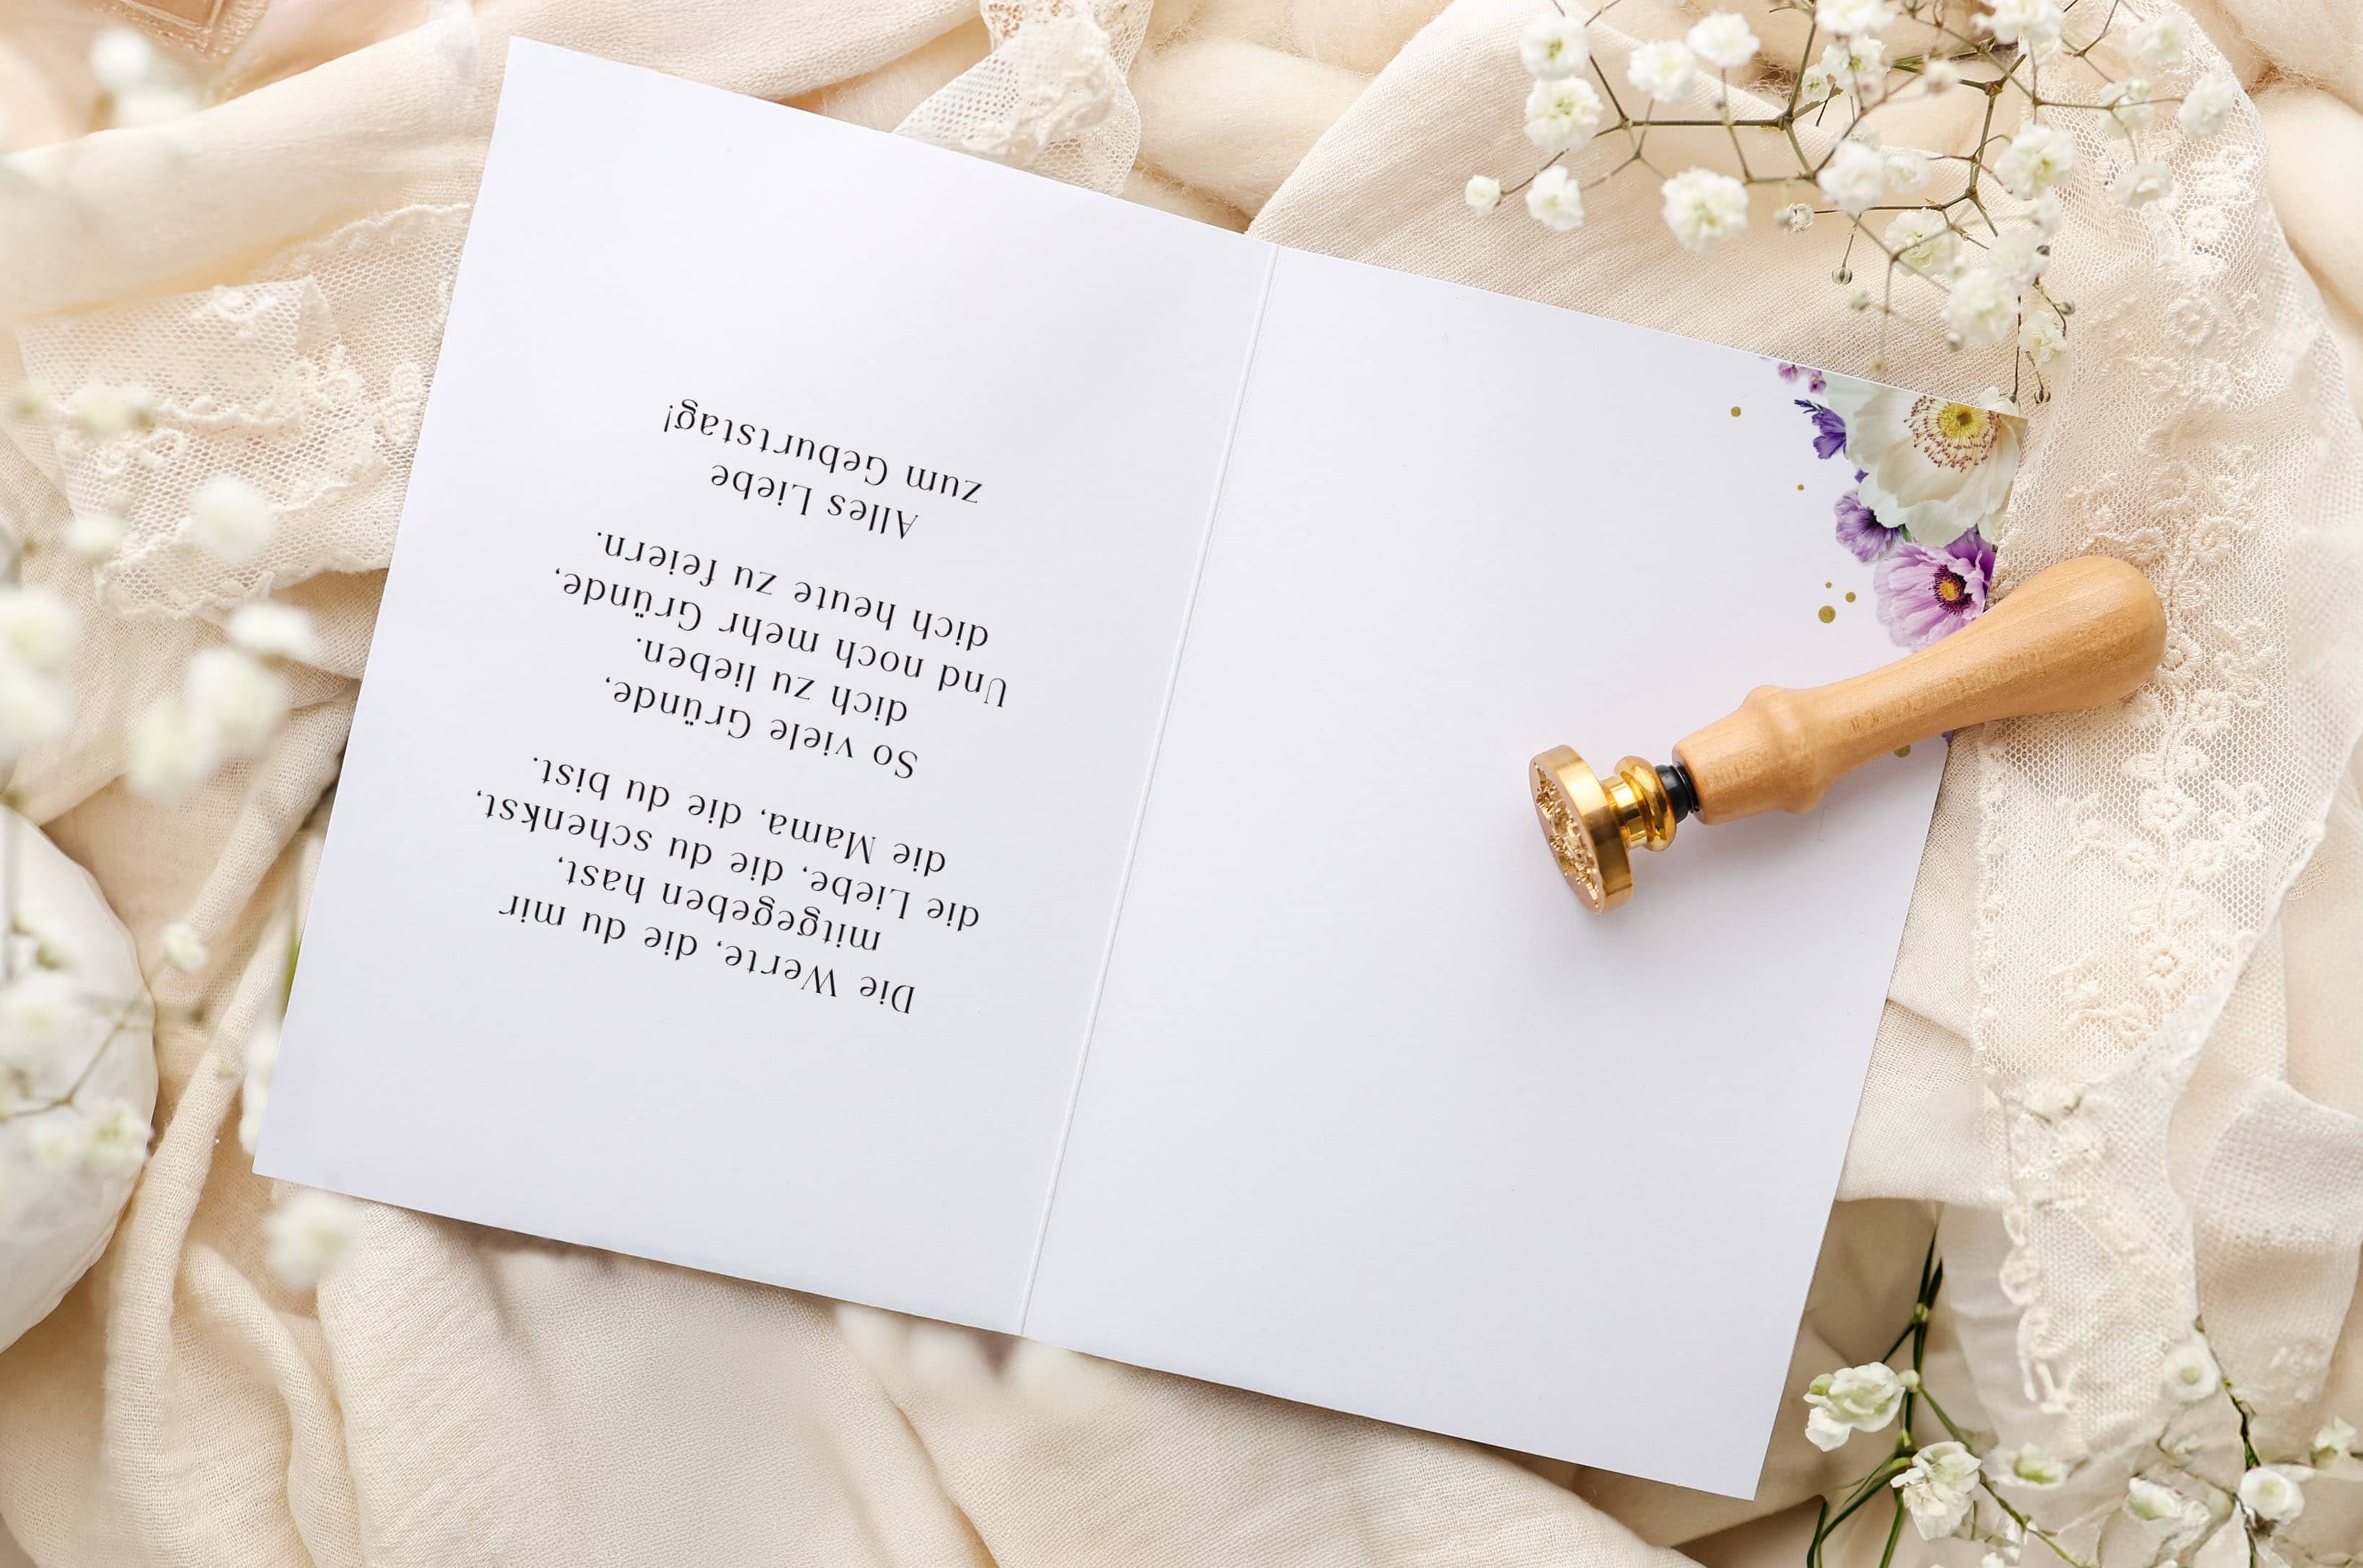 Die Werte, die du mir
mitgegeben hast,
die Liebe, die du schenkst,
die Mama, die du bist.
So viele Gründe,
dich zu lieben.
Und noch mehr Gründe,
dich heute zu feiern.
Alles Liebe
zum Geburtstag!